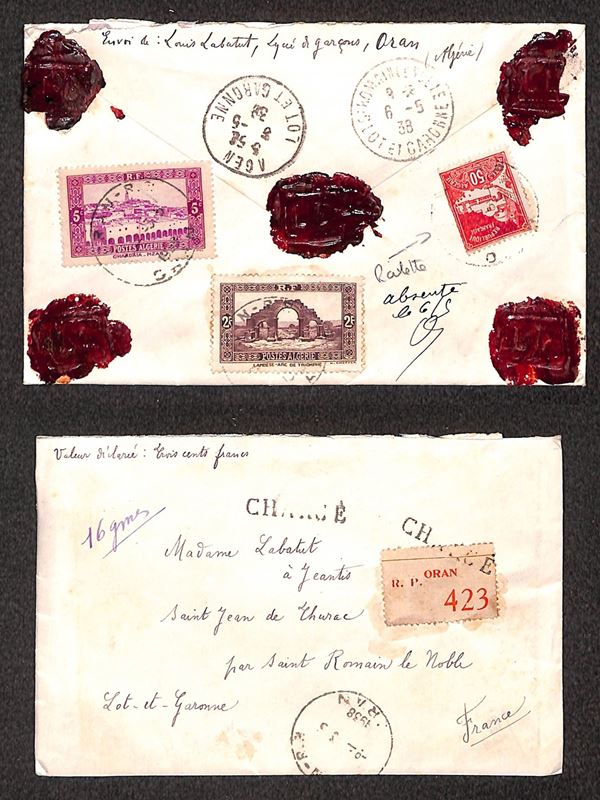 Envoi de : Louis Labatut, Lycée de garçons, Oran
(Algérie)
AGEN
3 52
3 -5
38
LOT ET GARONNE
ROMAIN LE NOBLE
8
6 -5
38
LOT ET GARONNE
R.F.
5c
5c
POSTES ALGERIE
GHARDAIA - MZAB
ORAN
50
REPUBLIQUE
FRANCAISE
Roulette
absente
le 6/5
R.F.
2F
2F
POSTES ALGERIE
LAMBESE - ARC DE TRIOMPHE
Valeur déclarée : trois cents francs
16 gmes
CHARGÉ
CHARGÉ
Madame Labatut
à Jeantis
Saint Jean de Thurac
par Saint Romain le Noble
Lot-et-Garonne
France
ORAN
R. P.
423
ORAN
1938